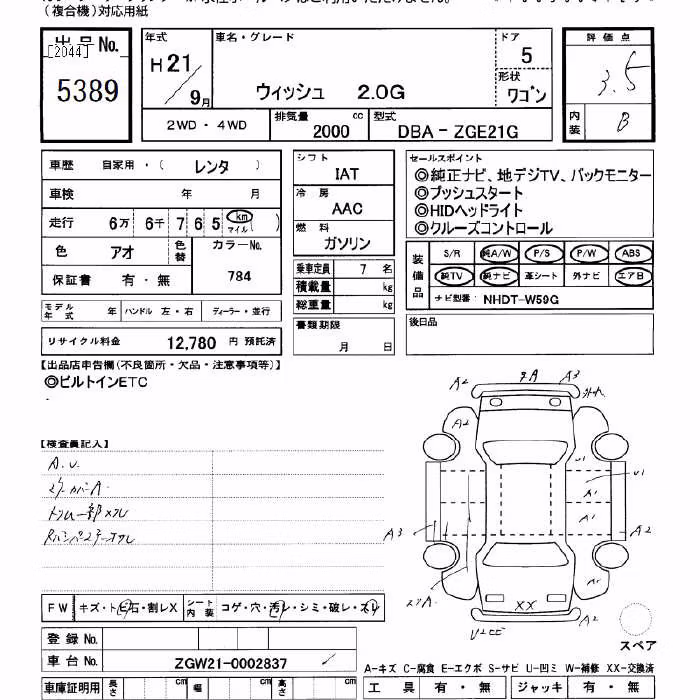 (複合機)対応用紙
出品No.
[2044]
5389
年式 車名・グレード ドア
H21/9月
ウィッシュ 2.0G
5
形状
ワゴン
評価点
3.5
内装 B
2WD・4WD 排気量 2000 cc 型式 DBA-ZGE21G
車歴 自家用・( レンタ )
車検 年 月
走行 6万 6千 7 6 5 km マイル ( )
色 アオ 色替 カラーNo.
784
保証書 有・無
モデル年式 年 ハンドル 左・右 ディーラー・並行
リサイクル料金 12,780 円 預託済
シフト
IAT
冷房
AAC
燃料
ガソリン
乗車定員 7 名
積載量 kg
総重量 kg
書類期限
月 日
セールスポイント
◎純正ナビ、地デジTV、バックモニター
◎プッシュスタート
◎HIDヘッドライト
◎クルーズコントロール
装備品 S/R 純A/W P/S P/W ABS
純TV 純ナビ 革シート 外ナビ エアB
ナビ型番: NHDT-W59G
後日品
【出品店申告欄(不良箇所・欠品・注意事項等)】
◎ビルトインETC
【検査員記入】
A.U.
A2
A3
A2
U1
U1
A1
A1
A3
A2
A1
XX
A2
FW キズ・トビ石・割レX シート内装 コゲ・穴・汚レ・シミ・破レ・スレ
登録No.
車台No. ZGW21-0002837
車庫証明用 長さ cm 幅 cm 高さ cm
スペア
A-キズ C-腐食 E-エクボ S-サビ U-凹ミ W-補修 XX-交換済
工具 有・無 ジャッキ 有・無